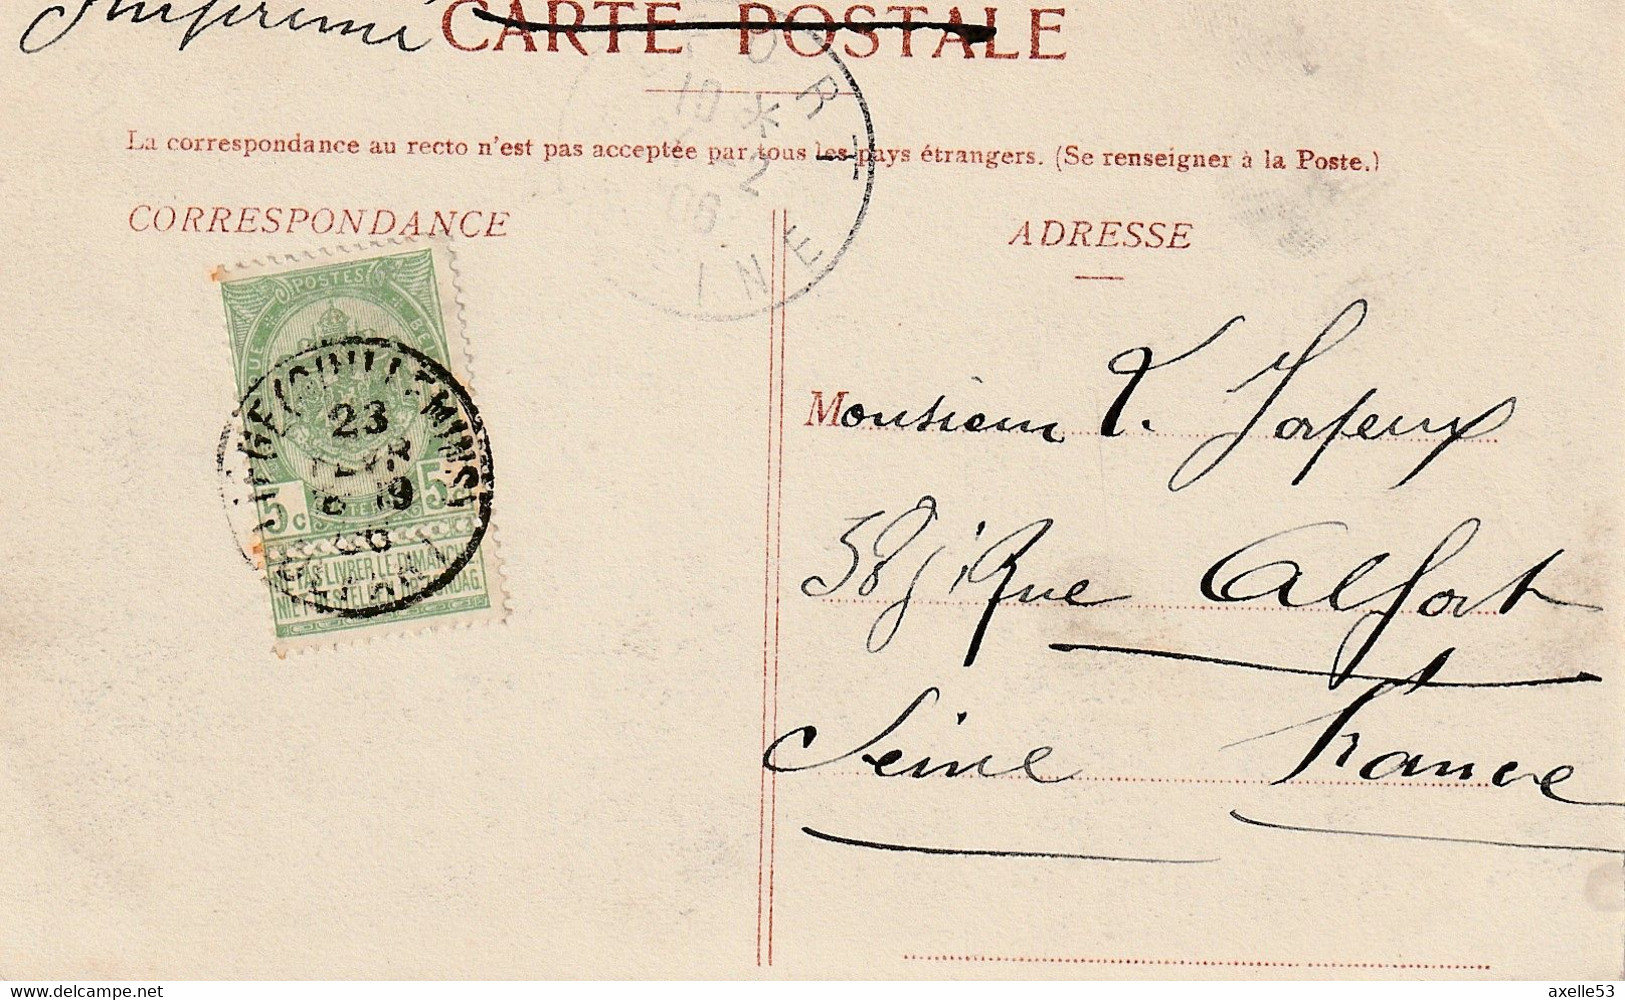 Imprimé CARTE POSTALE
La correspondance au recto n'est pas acceptée par tous les pays étrangers. (Se renseigner à la Poste.)
CORRESPONDANCE
ADRESSE
POSTES
5c 5c
NE PAS LIVRER LE DIMANCHE
NIET BESTELLEN OP ZONDAG.
(GUILLEMINS)
23
INE
Monsieur
Rue Alfort
Seine France
www.delcampe.net
axelle53